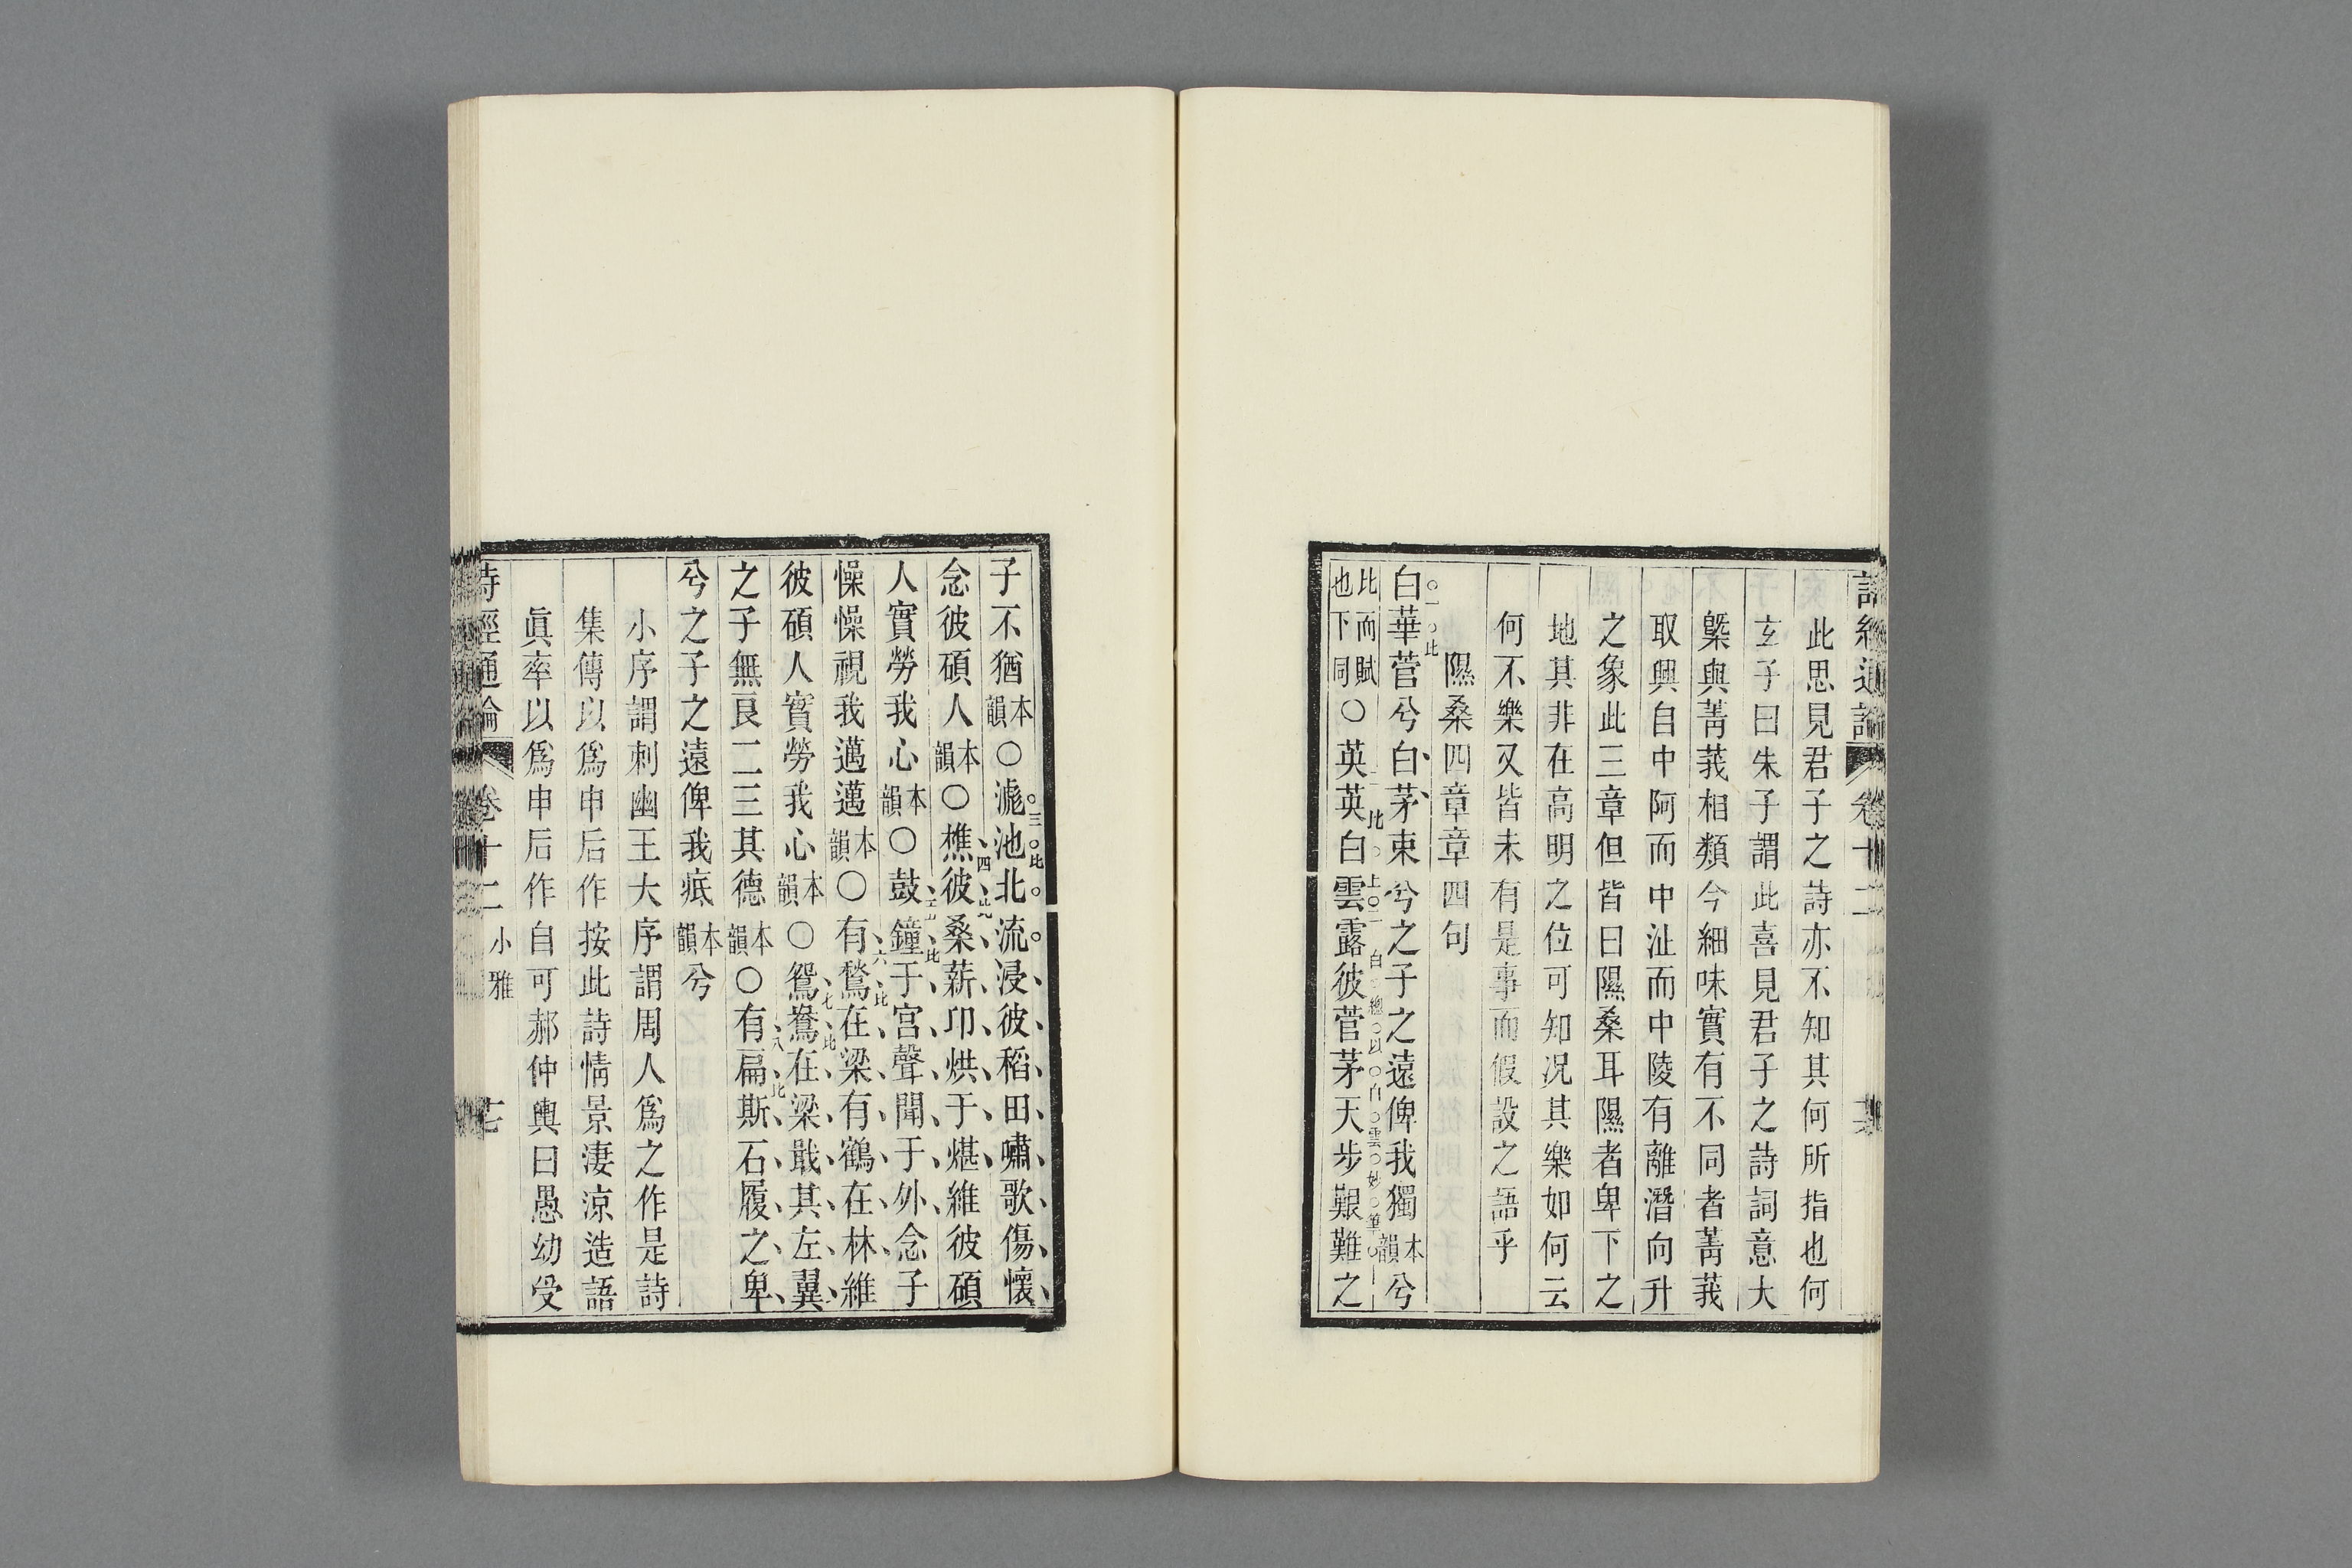 詩經通論 卷十二
此思見君子之詩亦不知其何所指也何
玄子曰朱子謂此喜見君子之詩詞意大
槩與菁莪相類今細味實有不同者菁莪
取興自中阿而中沚而中陵有離潛向升
之象此三章但皆曰隰桑耳隰者卑下之
地其非在高明之位可知况其樂如何云
何不樂又皆未有是事而假設之語乎
隰桑四章章四句
○一○此
白華菅兮白茅束兮之子之遠俾我獨本韻兮
比而賦也下同○英英白雲露彼菅茅天步艱難之
子不猶本韻○滮池北流浸彼稻田嘯歌傷懷
○三○比
念彼碩人本韻○樵彼桑薪卬烘于煁維彼碩
四比
人實勞我心本韻○鼓鐘于宮聲聞于外念子
五比
懆懆視我邁邁本韻○有鶖在梁有鶴在林維
六比
彼碩人實勞我心本韻○鴛鴦在梁戢其左翼
七比
之子無良二三其德本韻○有扁斯石履之卑
八比
兮之子之遠俾我疷本韻兮
小序謂刺幽王大序謂周人爲之作是詩
集傳以爲申后作按此詩情景淒涼造語
眞率以爲申后作自可郝仲輿曰愚幼受
詩經通論 卷十二 小雅 十七